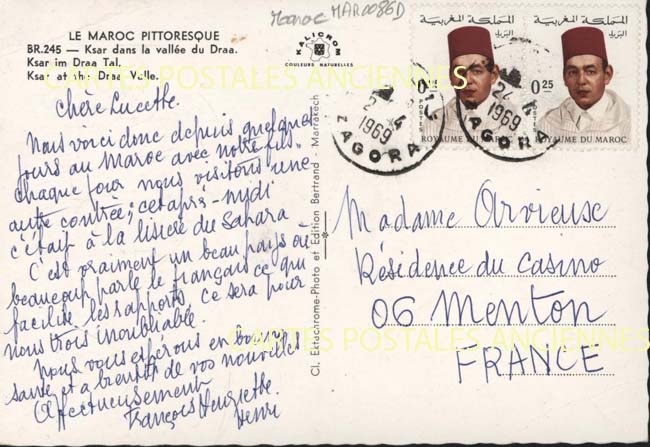 Maroc MAR0086D
LE MAROC PITTORESQUE
BR.245 — Ksar dans la vallée du Draa.
Ksar im Draa Tal.
Ksar at the Draa Valle.
KALICROM
COULEURS NATURELLES
المملكة المغربية
البريد
0,25
POSTES
ROYAUME DU MAROC
المملكة المغربية
البريد
0,25
POSTES
ROYAUME DU MAROC
24 4
1969
ZAGORA
24 4
1969
ZAGORA
CARTES POSTALES ANCIENNES
Chère Lucette.
Nous voici donc depuis quelques
jours au Maroc avec notre fils
chaque jour nous visitons une
autre contrée; cet après-midi
c'était à la lisière du Sahara
C'est vraiment un beau pays où
beaucoup parle le français ce qui
facilite les rapports, ce sera pour
nous trois inoubliable.
Nous vous espérons en bonne
santé et a bientôt de vos nouvelles
Affectueusement
François Henriette
Henri
Cl. Ektachrome-Photo et Edition Bertrand - Marrakech
Madame Arvieuse
Résidence du Casino
06 Menton
FRANCE
CARTES POSTALES ANCIENNES